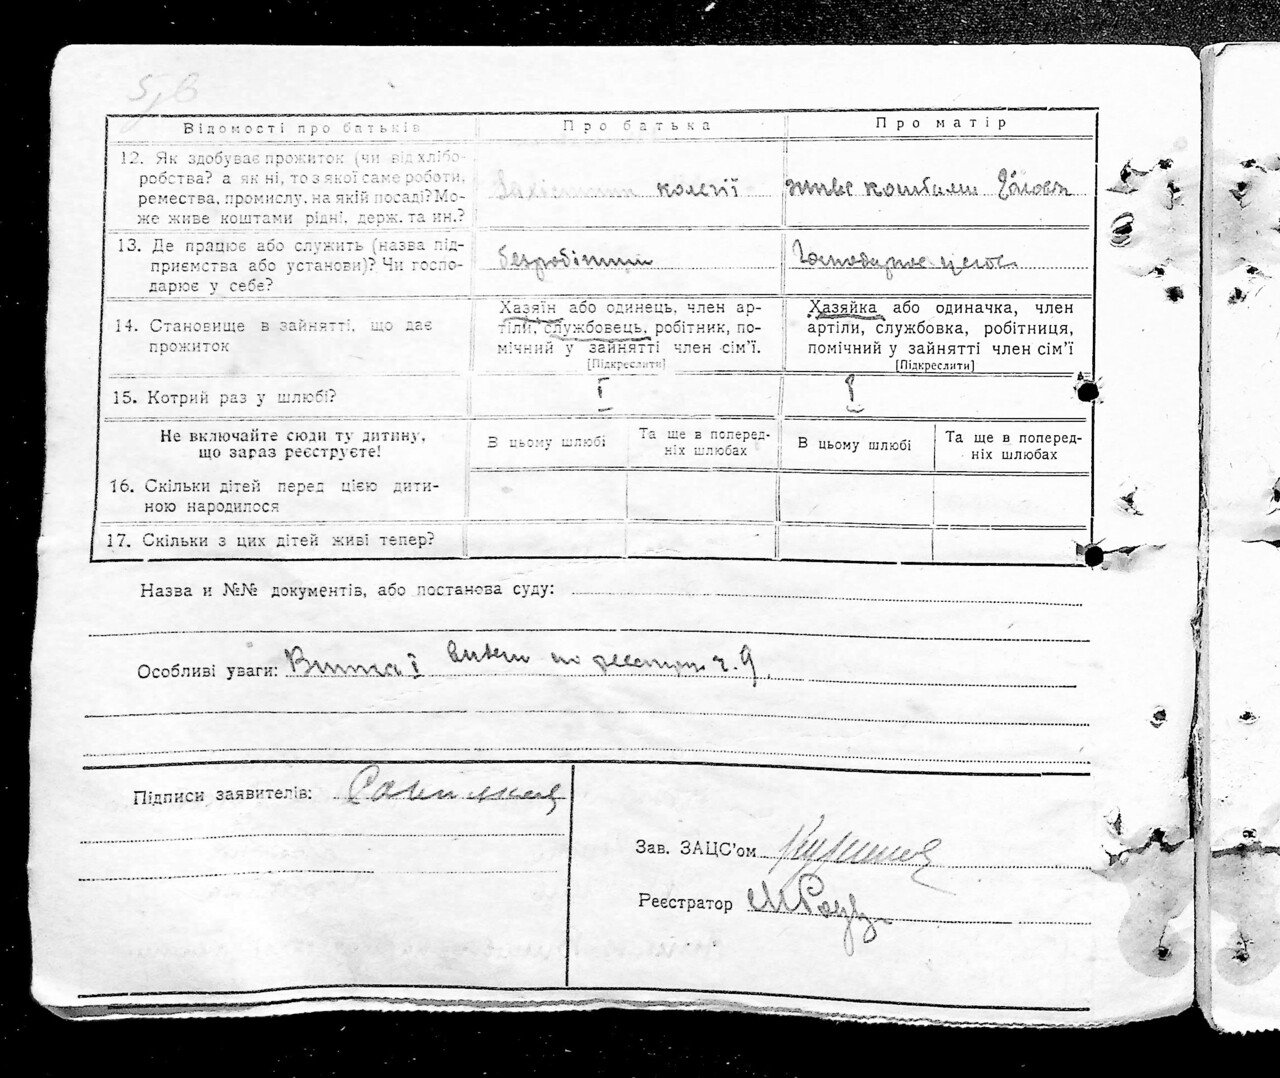 Відомості про батьків
Про батька
Про матір
12. Як здобуває прожиток (чи від хлібо-
робства? а як ні, то з якої саме роботи,
ремества, промислу, на якій посаді? Мо-
же живе коштами рідні, держ. та ин.?
колегії
живе коштами
13. Де працює або служить (назва під-
приємства або установи)? Чи госпо-
дарює у себе?
безробітний
14. Становище в зайнятті, що дає
прожиток
Хазяїн або одинець, член ар-
тіли, службовець, робітник, по-
мічний у зайнятті член сім'ї.
[Підкреслити]
Хазяйка або одиначка, член
артіли, службовка, робітниця,
помічний у зайнятті член сім'ї
[Підкреслити]
15. Котрий раз у шлюбі?
I
I
Не включайте сюди ту дитину,
що зараз реєструєте!
В цьому шлюбі
Та ще в поперед-
ніх шлюбах
В цьому шлюбі
Та ще в поперед-
ніх шлюбах
16. Скільки дітей перед цією дити-
ною народилося
17. Скільки з цих дітей живі тепер?
Назва и №№ документів, або постанова суду:
Особливі уваги: по реєстру ч. 9
Підписи заявителів:
Зав. ЗАЦС'ом
Реєстратор